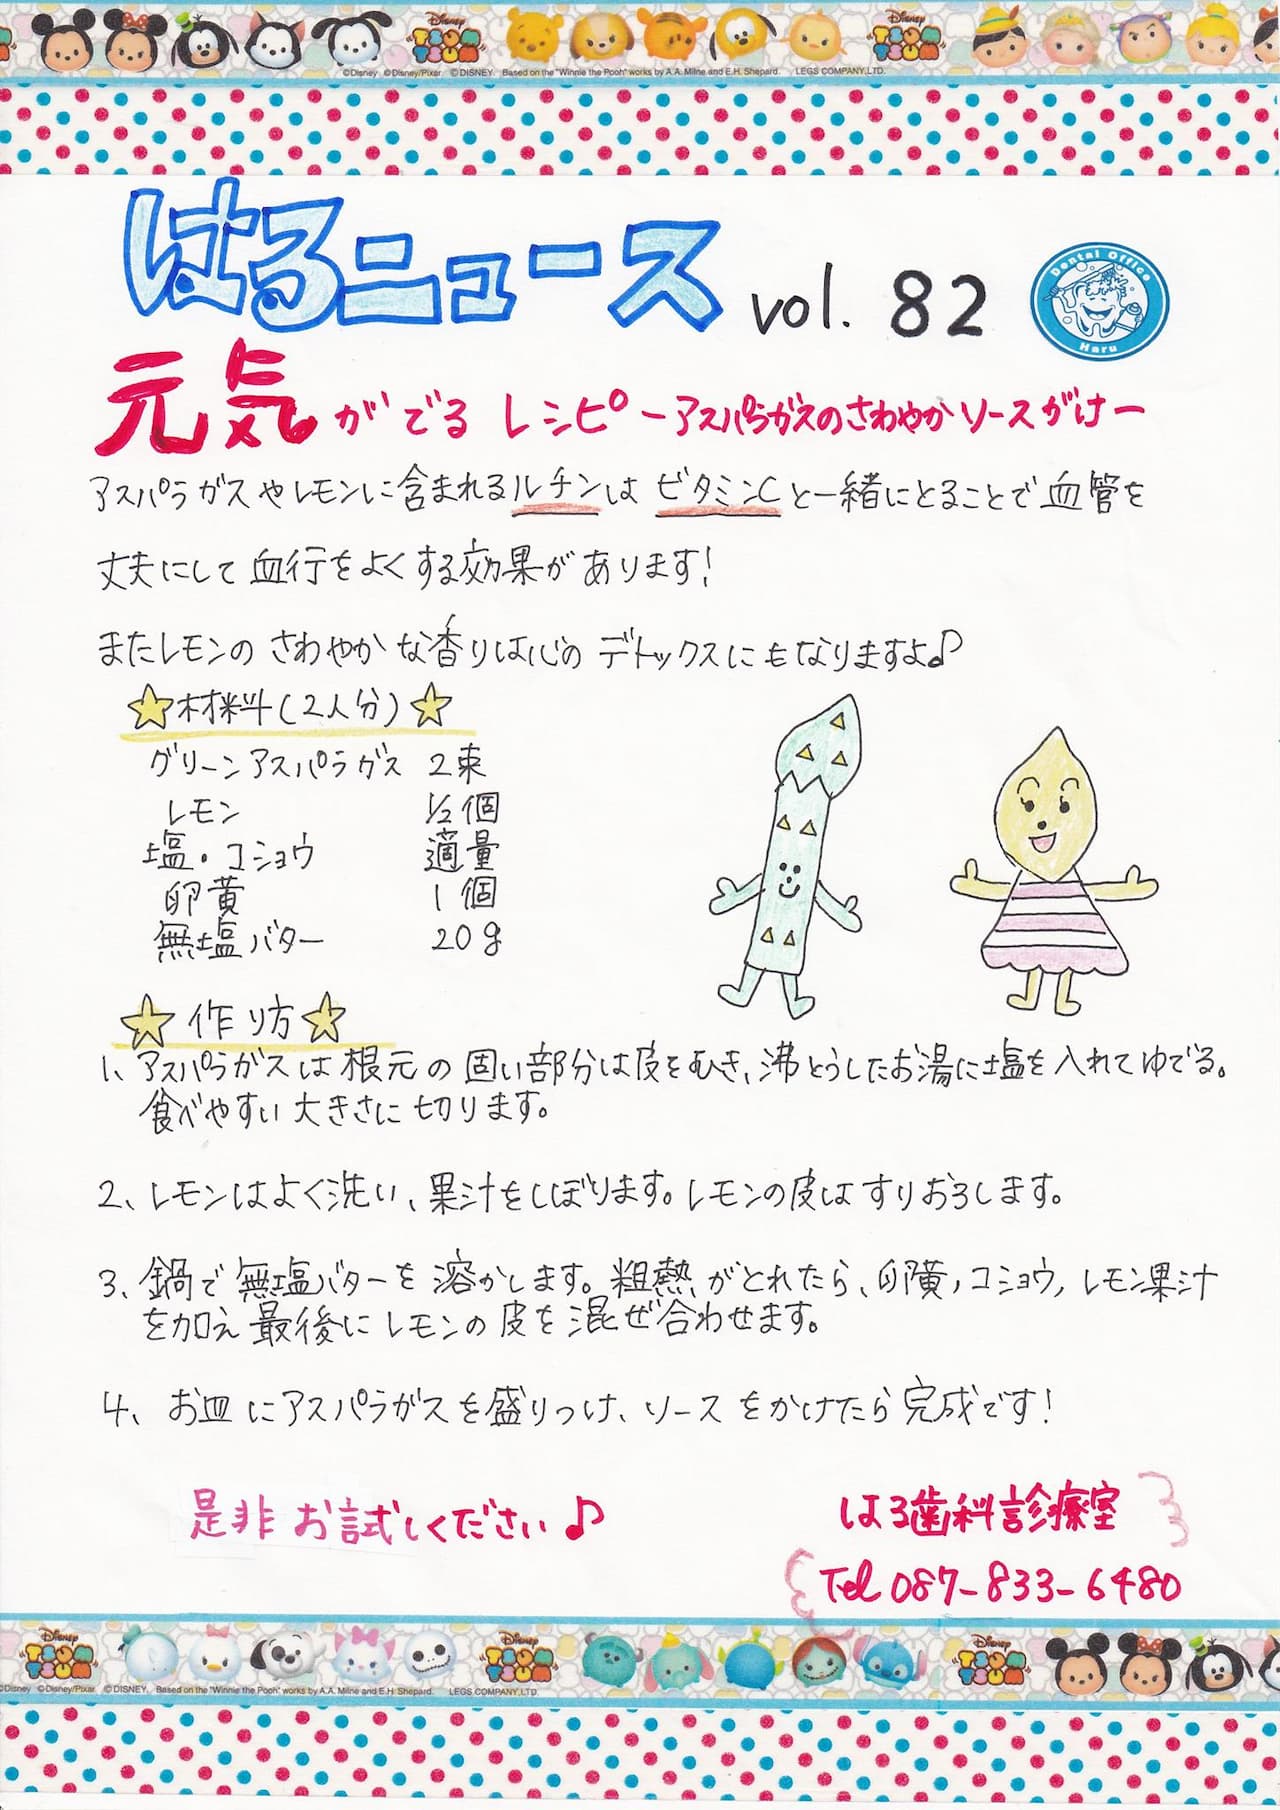 Disney TSUM TSUM
Disney TSUM TSUM
©Disney ©Disney/Pixar ©DISNEY. Based on the "Winnie the Pooh" works by A.A. Milne and E.H. Shepard. LEGS COMPANY,LTD.
はるニュース vol. 82
Dental Office
Haru
元気がでるレシピ -アスパラガスのさわやかソースがけ-
アスパラガスやレモンに含まれるルチンは ビタミンCと一緒にとることで血管を
丈夫にして血行をよくする効果があります!
またレモンのさわやかな香りは心のデトックスにもなりますよ♪
☆材料(2人分)☆
グリーンアスパラガス 2束
レモン 1/2個
塩・コショウ 適量
卵黄 1個
無塩バター 20g
☆作り方☆
1、アスパラガスは根元の固い部分は皮をむき、沸とうしたお湯に塩を入れてゆでる。
食べやすい大きさに切ります。
2、レモンはよく洗い、果汁をしぼります。レモンの皮はすりおろします。
3、鍋で無塩バターを溶かします。粗熱がとれたら、卵黄,コショウ,レモン果汁
を加え最後にレモンの皮を混ぜ合わせます。
4、お皿にアスパラガスを盛りつけ、ソースをかけたら完成です!
是非お試しください♪
はる歯科診療室
Tel 087-833-6480
Disney TSUM TSUM
Disney TSUM TSUM
Disney TSUM TSUM
©Disney ©Disney/Pixar ©DISNEY. Based on the "Winnie the Pooh" works by A.A. Milne and E.H. Shepard. LEGS COMPANY,LTD.